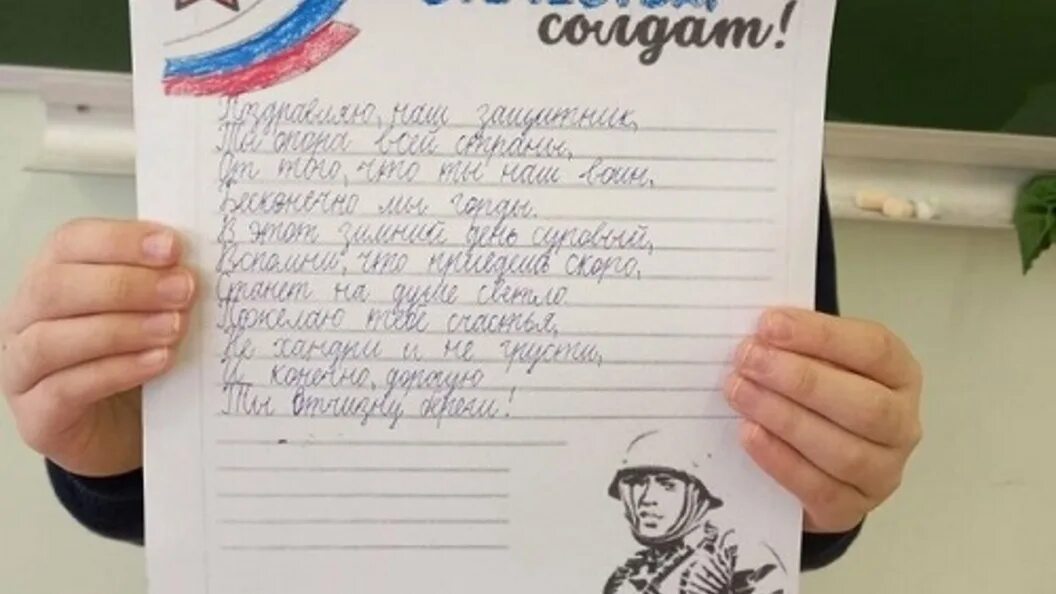 солдат!
Поздравляю, наш защитник,
Ты опора всей страны,
От того, что ты наш воин,
Бесконечно мы горды.
В этот зимний день суровый,
Вспомни, что придёт скоро,
Станет на душе светло.
Пожелаю тебе счастья,
Не хандри и не грусти,
И конечно, дорогую
Ты отчизну береги!